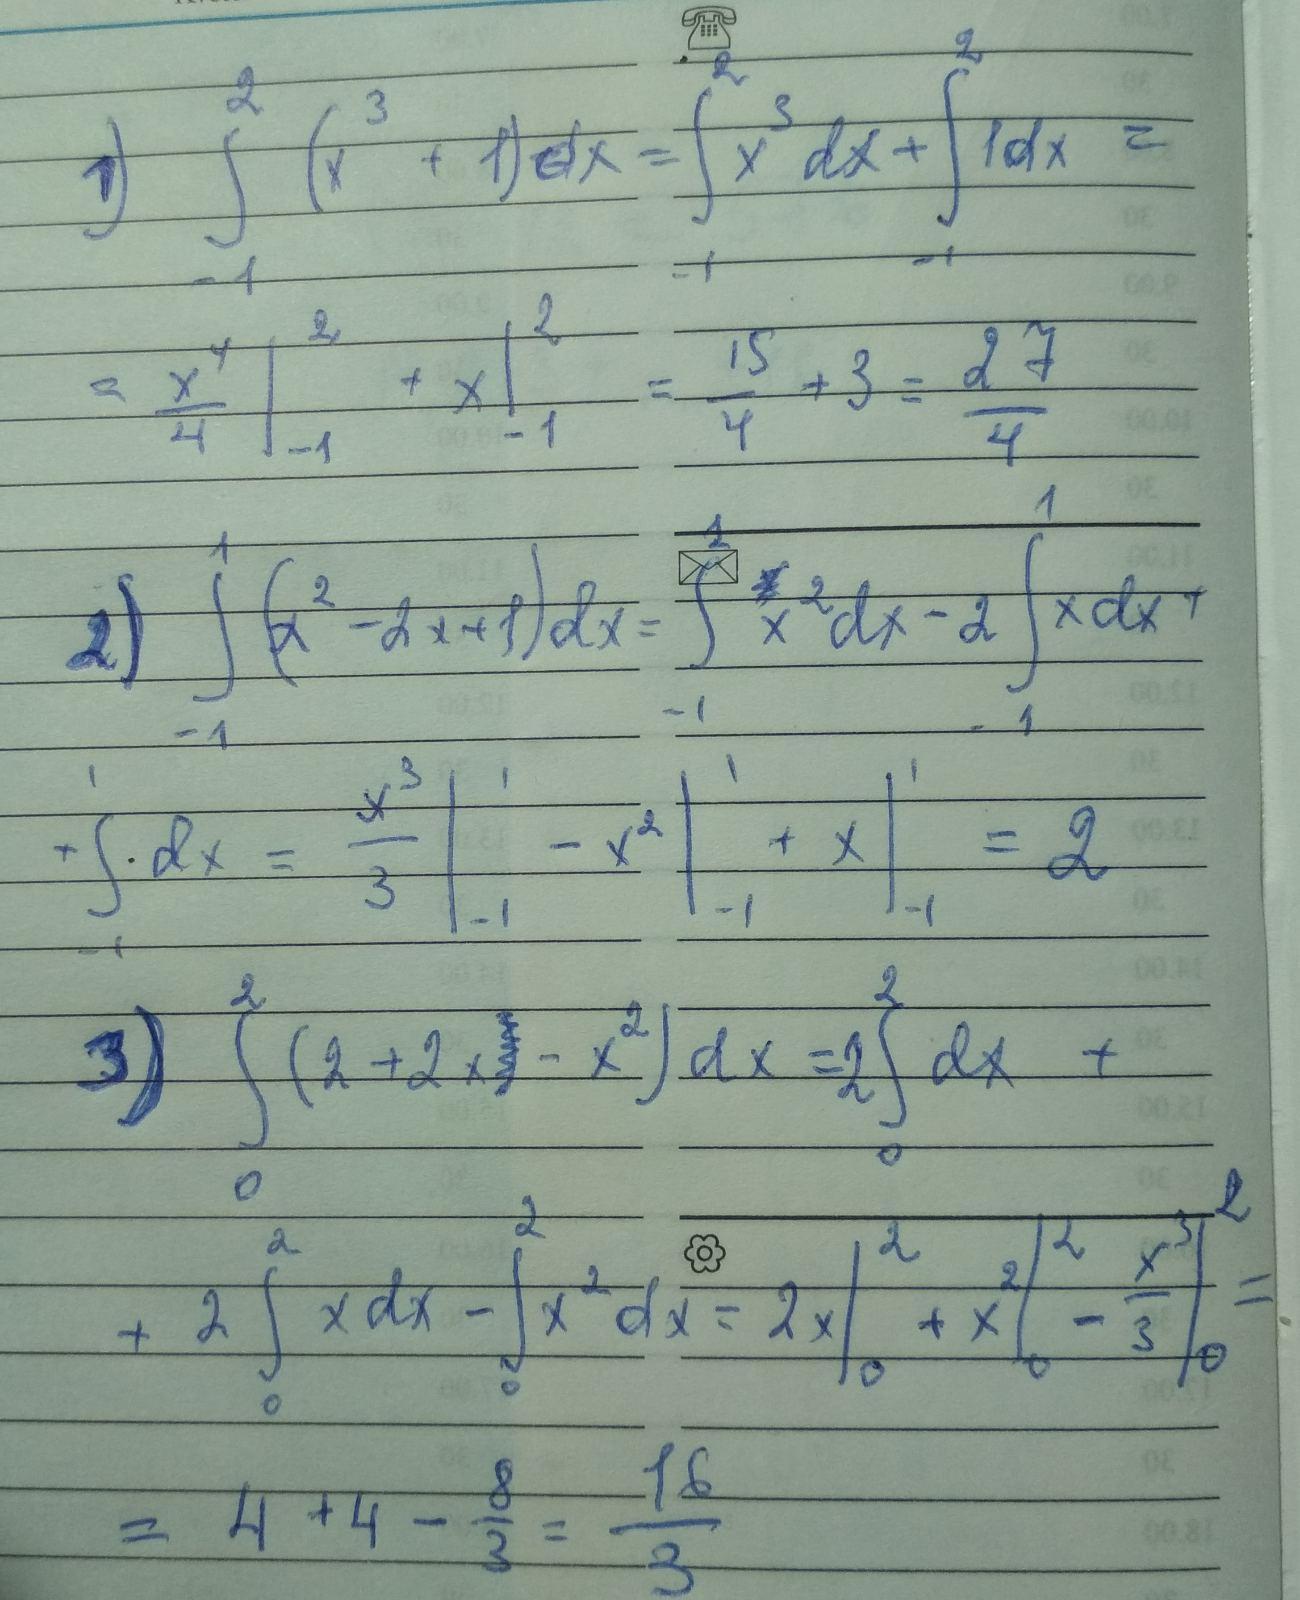 1) ∫_{-1}^{2} (x^3 + 1) dx = ∫_{-1}^{2} x^3 dx + ∫_{-1}^{2} 1 dx =
= x^4/4 |_{-1}^{2} + x |_{-1}^{2} = 15/4 + 3 = 27/4
2) ∫_{-1}^{1} (x^2 - 2x + 1) dx = ∫_{-1}^{1} x^2 dx - 2 ∫_{-1}^{1} x dx +
+ ∫_{-1}^{1} dx = x^3/3 |_{-1}^{1} - x^2 |_{-1}^{1} + x |_{-1}^{1} = 2
3) ∫_{0}^{2} (2 + 2x - x^2) dx = 2 ∫_{0}^{2} dx +
+ 2 ∫_{0}^{2} x dx - ∫_{0}^{2} x^2 dx = 2x |_{0}^{2} + x^2 |_{0}^{2} - x^3/3 |_{0}^{2} =
= 4 + 4 - 8/3 = 16/3